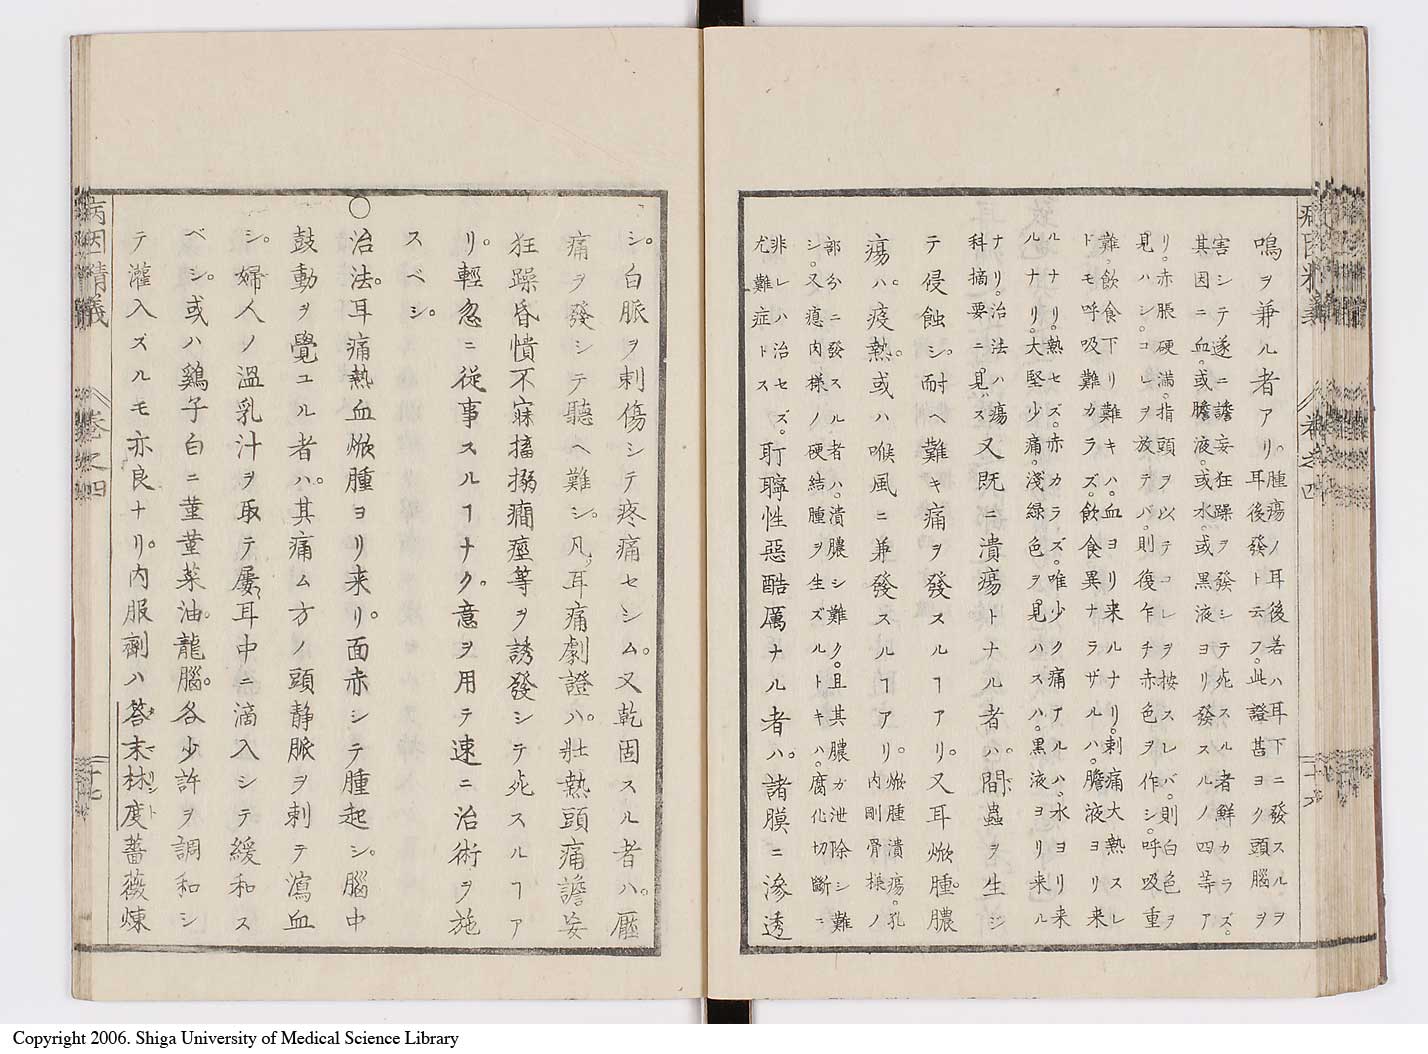 鳴ヲ兼ル者アリ。
腫瘍ノ耳後若ハ耳下ニ發スルヲ
耳後發ト云フ。此證甚ヨク頭腦ヲ
害シテ遂ニ譫妄狂躁ヲ發シテ死スル者鮮カラズ。
其因ニ血。或膽液。或水。或黒液ヨリ發スルノ四等ア
リ。赤脹硬満。指頭ヲ以テコレヲ按スレバ。則白色ヲ
見ハシ。コレヲ放テバ。則復乍チ赤色ヲ作シ。呼吸重
難飲食下リ難キハ。血ヨリ来ルナリ。刺痛大熱スレ
ドモ呼吸難カラズ。飲食異ナラザルハ。膽液ヨリ来
ルナリ。熱セズ。赤カラズ。唯少ク痛アルハ。水ヨリ来
ルナリ。大堅少痛。淺緑色ヲ見ハスハ。黒液ヨリ来ル
ナリ。治法ハ瘍
科摘要ニ見ス
又既ニ潰瘍トナル者ハ。間蟲ヲ生シ
テ侵蝕シ。耐ヘ難キ痛ヲ發スルヿアリ。又耳焮腫。膿
瘍ハ。疫熱。或ハ喉風ニ兼發スルヿアリ。
焮腫潰瘍。孔
内剛骨様ノ
部分ニ發スル者ハ。潰膿シ難ク。且其膿ガ泄除シ難
シ。又瘜肉様ノ硬結腫ヲ生ズルトキハ。腐化切斷ニ
非レハ治セズ。
尤難症トス
耵聹性惡酷厲ナル者ハ。諸膜ニ滲透
シ。白脈ヲ刺傷シテ疼痛セシム。又乾固スル者ハ。壓
痛ヲ發シテ聽ヘ難シ。凡ソ耳痛劇證ハ。壮熱頭痛譫妄
狂躁昏憒不寐搐搦癎痙等ヲ誘發シテ死スルヿア
リ。輕忽ニ従事スルヿナク。意ヲ用テ速ニ治術ヲ施
スベシ。
〇治法。耳痛熱血焮腫ヨリ来リ。面赤シテ腫起シ。腦中
鼓動ヲ覺ユル者ハ。其痛ム方ノ頭静脈ヲ刺テ瀉血
シ。婦人ノ温乳汁ヲ取テ屢〻耳中ニ滴入シテ緩和ス
ベシ。或ハ鷄子白ニ菫菫菜油。龍腦。各少許ヲ調和シ
テ灌入ズルモ亦良ナリ。内服劑ハ答末林度薔薇煉
病因精義 巻之四 二十七